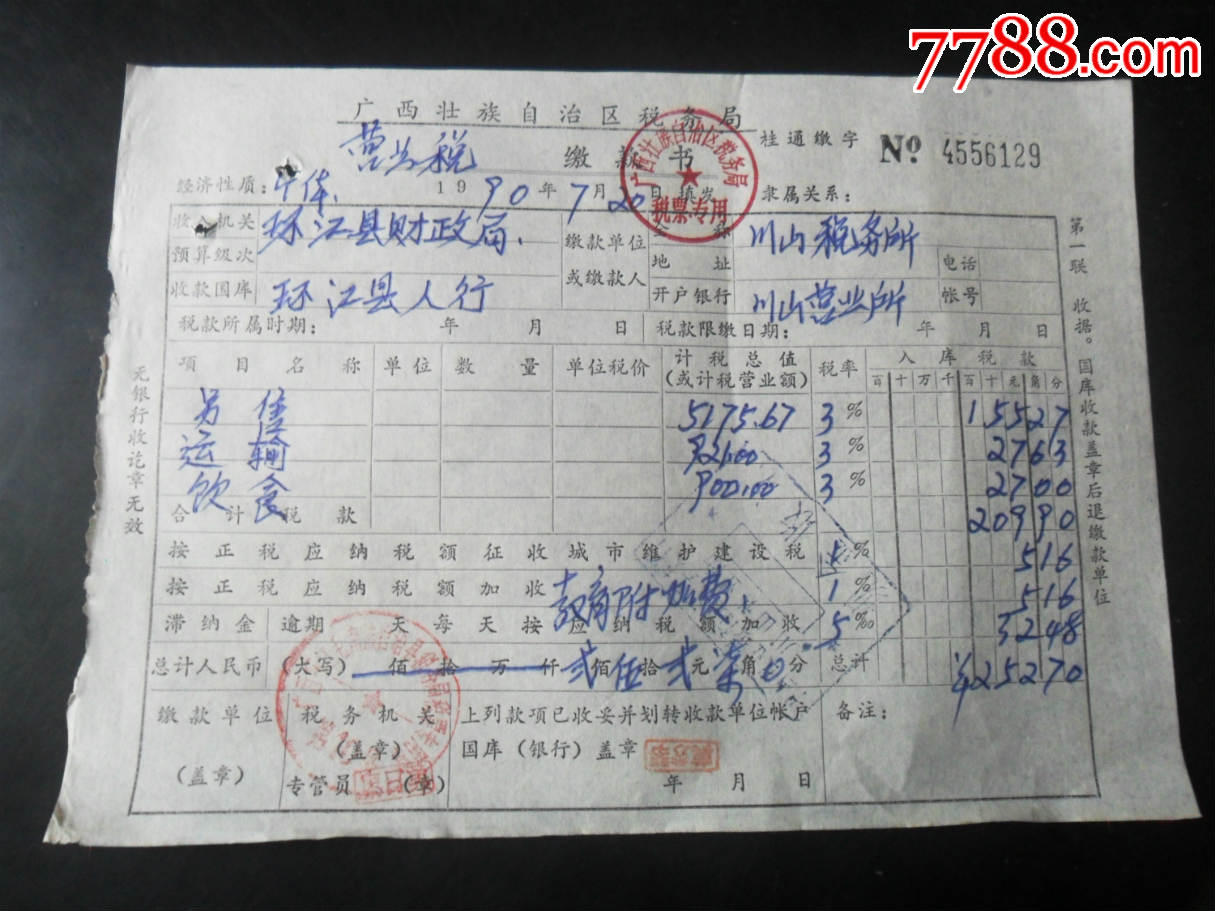 7788.com
广西壮族自治区税务局
营业税 缴款书 桂通缴字 № 4556129
经济性质：个体. 1990年7月20日填发 隶属关系：
广西壮族自治区税务局
税票专用
收入机关 环江县财政局.
预算级次
收款国库 环江县人行
缴款单位或缴款人
全称 川山税务所
地址 电话
开户银行 川山营业所 帐号
税款所属时期： 年 月 日 税款限缴日期： 年 月 日
项目名称 单位 数量 单位税价 计税总值（或计税营业额） 税率 入库税款
百 十 万 千 百 十 元 角 分
另售 5175.67 3% 15527
运输 921.00 3% 2763
饮食 900.00 3% 2700
合计税款 20990
按正税应纳税额征收城市维护建设税 1% 516
按正税应纳税额加收 教育附加费 1% 516
滞纳金逾期 天每天按应纳税额加收 5‰ 3248
总计人民币（大写） 佰 拾 万 仟 贰佰伍拾贰元柒角0分 总计 ¥25270
缴款单位（盖章）
税务机关（盖章）
专管员（章）
上列款项已收妥并划转收款单位帐户
国库（银行）盖章
年 月 日
备注：
无银行收讫章无效
第一联 收据。国库收款盖章后退缴款单位